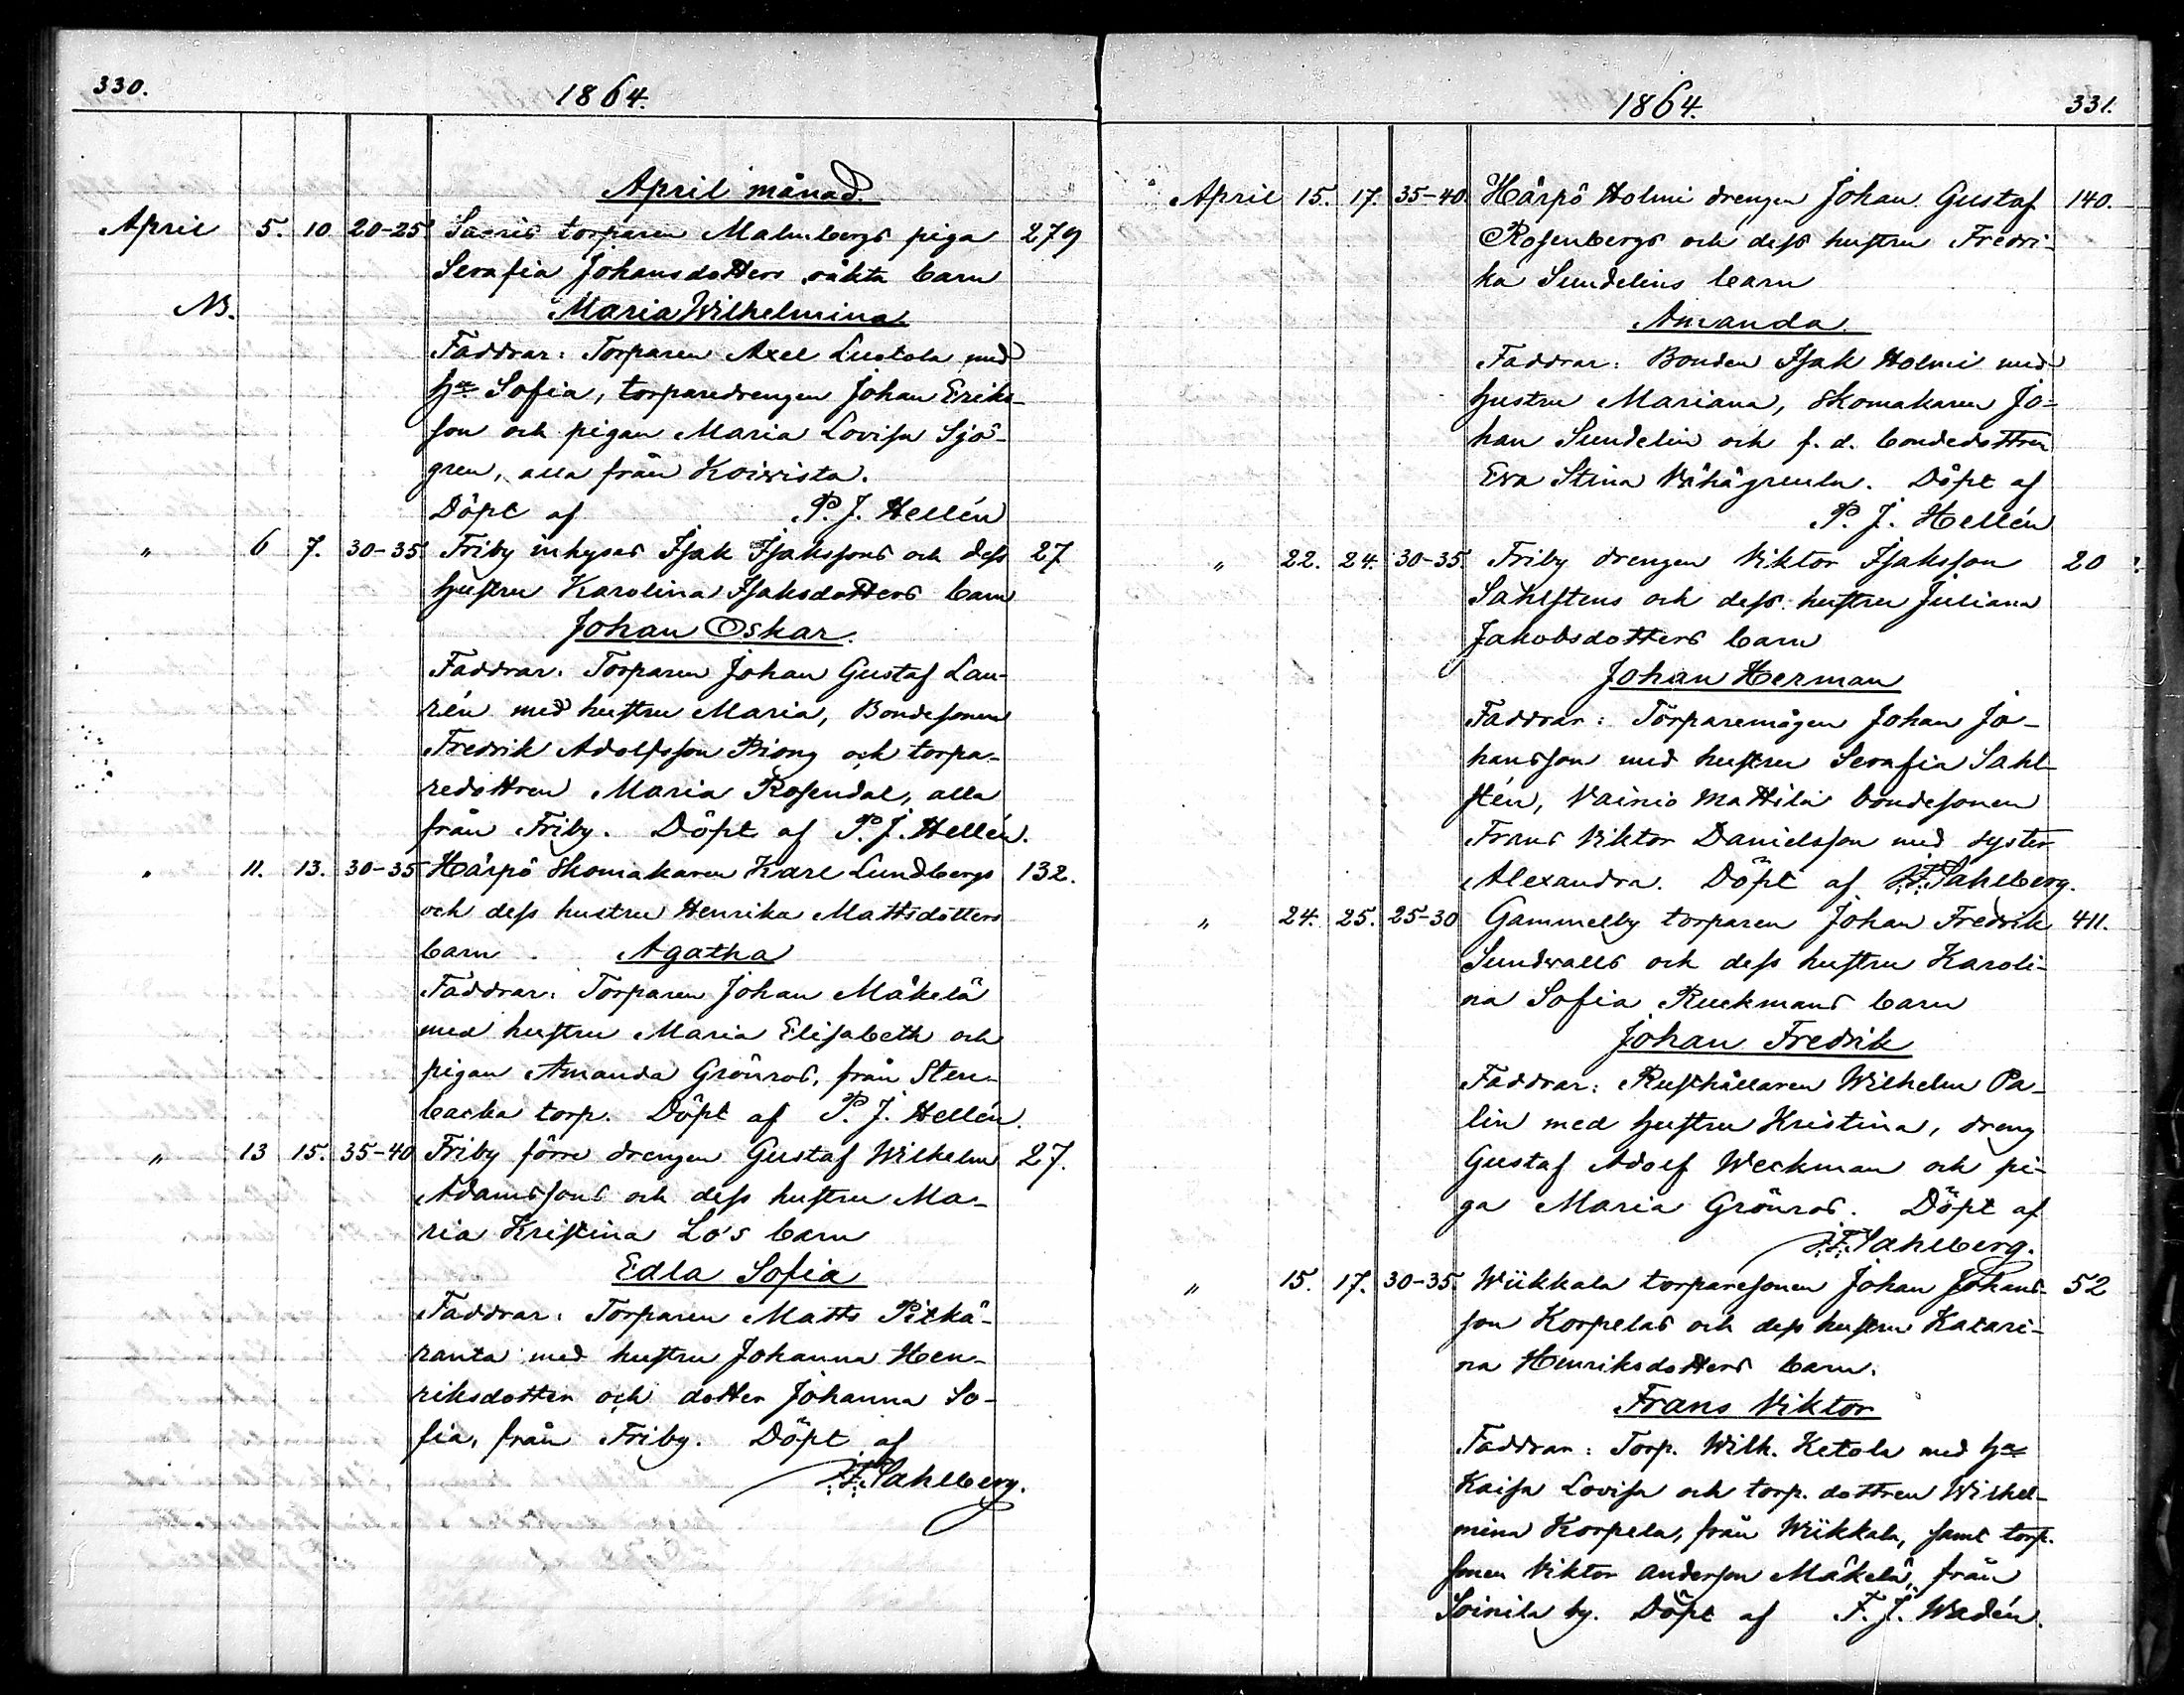 330.
1864.
April månad.
April 5. 10 20-25 Sacris torparen Malmbergs piga 279
Serafia Johansdotters oäkta barn
NB.
Maria Wilhelmina
Faddrar: Torparen Axel Luotola med
hu Sofia, torparedrengen Johan Eriks-
son och pigan Maria Lovisa Sjö-
gren, alla från Koivista.
Döpt af P. J. Hellén
" 6 7. 30-35 Friby inhyses Isak Isakssons och dess 27
hustru Karolina Isaksdotters barn
Johan Oskar.
Faddrar: Torparen Johan Gustaf Lau-
rén med hustru Maria, Bondesonen
Fredrik Adolfsson Piong och torpa-
redottren Maria Rosendal, alla
från Friby. Döpt af P. J. Hellén.
" 11. 13. 30-35 Härpö Skomakaren Karl Lundbergs 132.
och dess hustru Henrika Mattsdotters
barn Agatha
Faddrar: Torparen Johan Mäkelä
med hustru Maria Elisabeth och
pigan Amanda Grönros, från Sten-
backa torp. Döpt af P. J. Hellén.
" 13 15. 35-40 Friby förre drengen Gustaf Wilhelm 27.
Adamssons och dess hustru Ma-
ria Kristina Lo's barn
Edla Sofia
Faddrar: Torparen Matts Pitkä-
ranta med hustru Johanna Hen-
riksdotter och dotter Johanna So-
fia, från Friby. Döpt af
F. Sahlberg.
1864.
331.
April 15. 17. 35-40 Härpö Holmi drengen Johan Gustaf 140.
Rosenbergs och dess hustru Fredri-
ka Sundelins barn
Amanda.
Faddrar: Bonden Isak Holmi med
hustru Mariana, Skomakaren Jo-
han Sundelin och f. d. bondedottren
Eva Stina Vähägreula. Döpt af
P. J. Hellén
" 22. 24. 30-35. Friby drengen Viktor Isaksson 20
Sahlstens och dess hustru Juliana
Jakobsdotters barn
Johan Herman
Faddrar: Torparemågen Johan Jo-
hansson med hustru Serafia Sahl-
stén, Vainio Mattila bondesonen
Frans Viktor Danielsson med syster
Alexandra. Döpt af F. Sahlberg.
" 24. 25. 25-30 Gammelby torparen Johan Fredrik 411.
Sundvalls och dess hustru Karoli-
na Sofia Ruckmans barn
Johan Fredrik
Faddrar: Rusthållaren Wilhelm Pa-
lin med hustru Kristina, dreng
Gustaf Adolf Weckman och pi-
ga Maria Grönros. Döpt af
F. Sahlberg.
" 15. 17. 30-35. Wiikkala torparesonen Johan Johans- 52
son Korpelas och dess hustru Katari-
na Henriksdotters barn.
Frans Viktor
Faddrar: Torp. Wilh. Ketola med hu
Kaisa Lovisa och torp. dottren Wilhel-
mina Korpela, från Wiikkala, samt torp.
sonen Viktor Anderson Mäkelä, från
Soinila by. Döpt af F. J. Wadén.